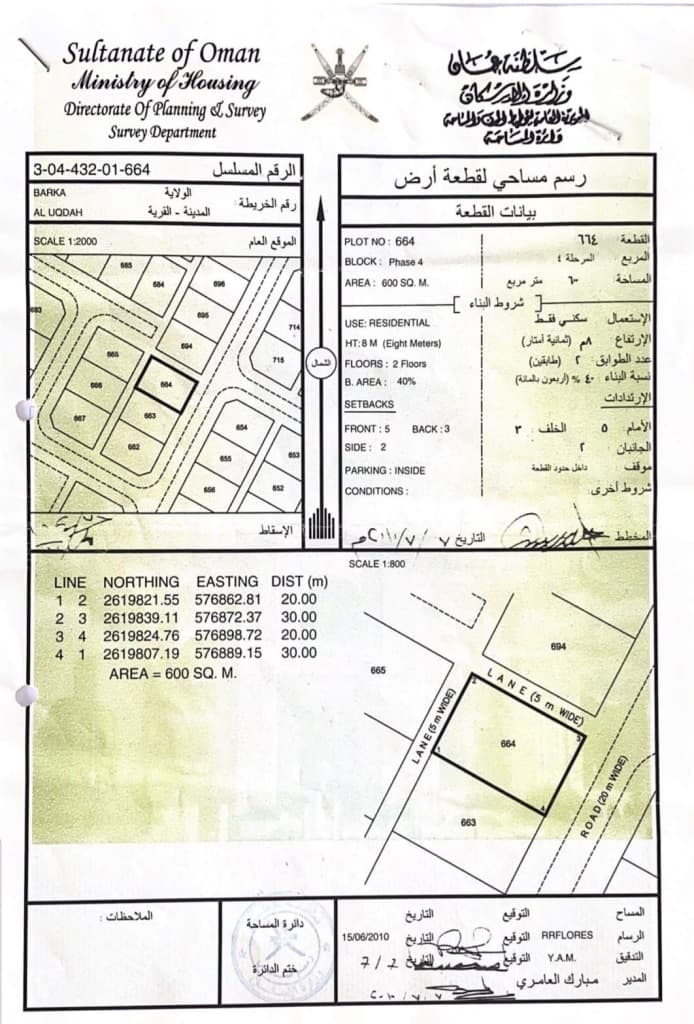 Sultanate of Oman
Ministry of Housing
Directorate Of Planning & Survey
Survey Department
سلطنة عمان
وزارة الإسكان
المديرية العامة للتخطيط والمساحة
دائرة المساحة
3-04-432-01-664 الرقم المسلسل
BARKA الولاية
AL UQDAH المدينة - القرية
رقم الخريطة :
SCALE 1:2000 الموقع العام
685
684
696
693
695
714
694
665
715
666
664
667
663
654
662
655
653
656
652
الإسقاط
الشمال
رسم مساحي لقطعة أرض
بيانات القطعة
PLOT NO : 664 القطعة ٦٦٤
BLOCK : Phase 4 المربع المرحلة ٤
AREA : 600 SQ. M. المساحة ٦٠٠ متر مربع
شروط البناء
USE: RESIDENTIAL الإستعمال سكني فقط
HT: 8 M (Eight Meters) الإرتفاع ٨م (ثمانية أمتار)
FLOORS : 2 Floors عدد الطوابق: ٢ (طابقين)
B. AREA : 40% نسبة البناء : ٤٠ % (أربعون بالمائة)
SETBACKS الإرتدادات
FRONT : 5 BACK : 3 الأمام ٥ الخلف : ٣
SIDE : 2 الجانبان ٢
PARKING : INSIDE موقف داخل حدود القطعة
CONDITIONS : شروط أخرى:
المخطط التاريخ
SCALE 1:800
LINE NORTHING EASTING DIST (m)
1 2 2619821.55 576862.81 20.00
2 3 2619839.11 576872.37 30.00
3 4 2619824.76 576898.72 20.00
4 1 2619807.19 576889.15 30.00
AREA = 600 SQ. M.
694
665
LANE (5 m WIDE)
LANE (5 m WIDE)
2
3
664
1
4
663
ROAD (20 m WIDE)
الملاحظات :
دائرة المساحة
ختم الدائرة
المساح التوقيع التاريخ
الرسام RRFLORES التوقيع التاريخ 15/06/2010
التدقيق Y.A.M. التوقيع التاريخ
المدير مبارك العامري